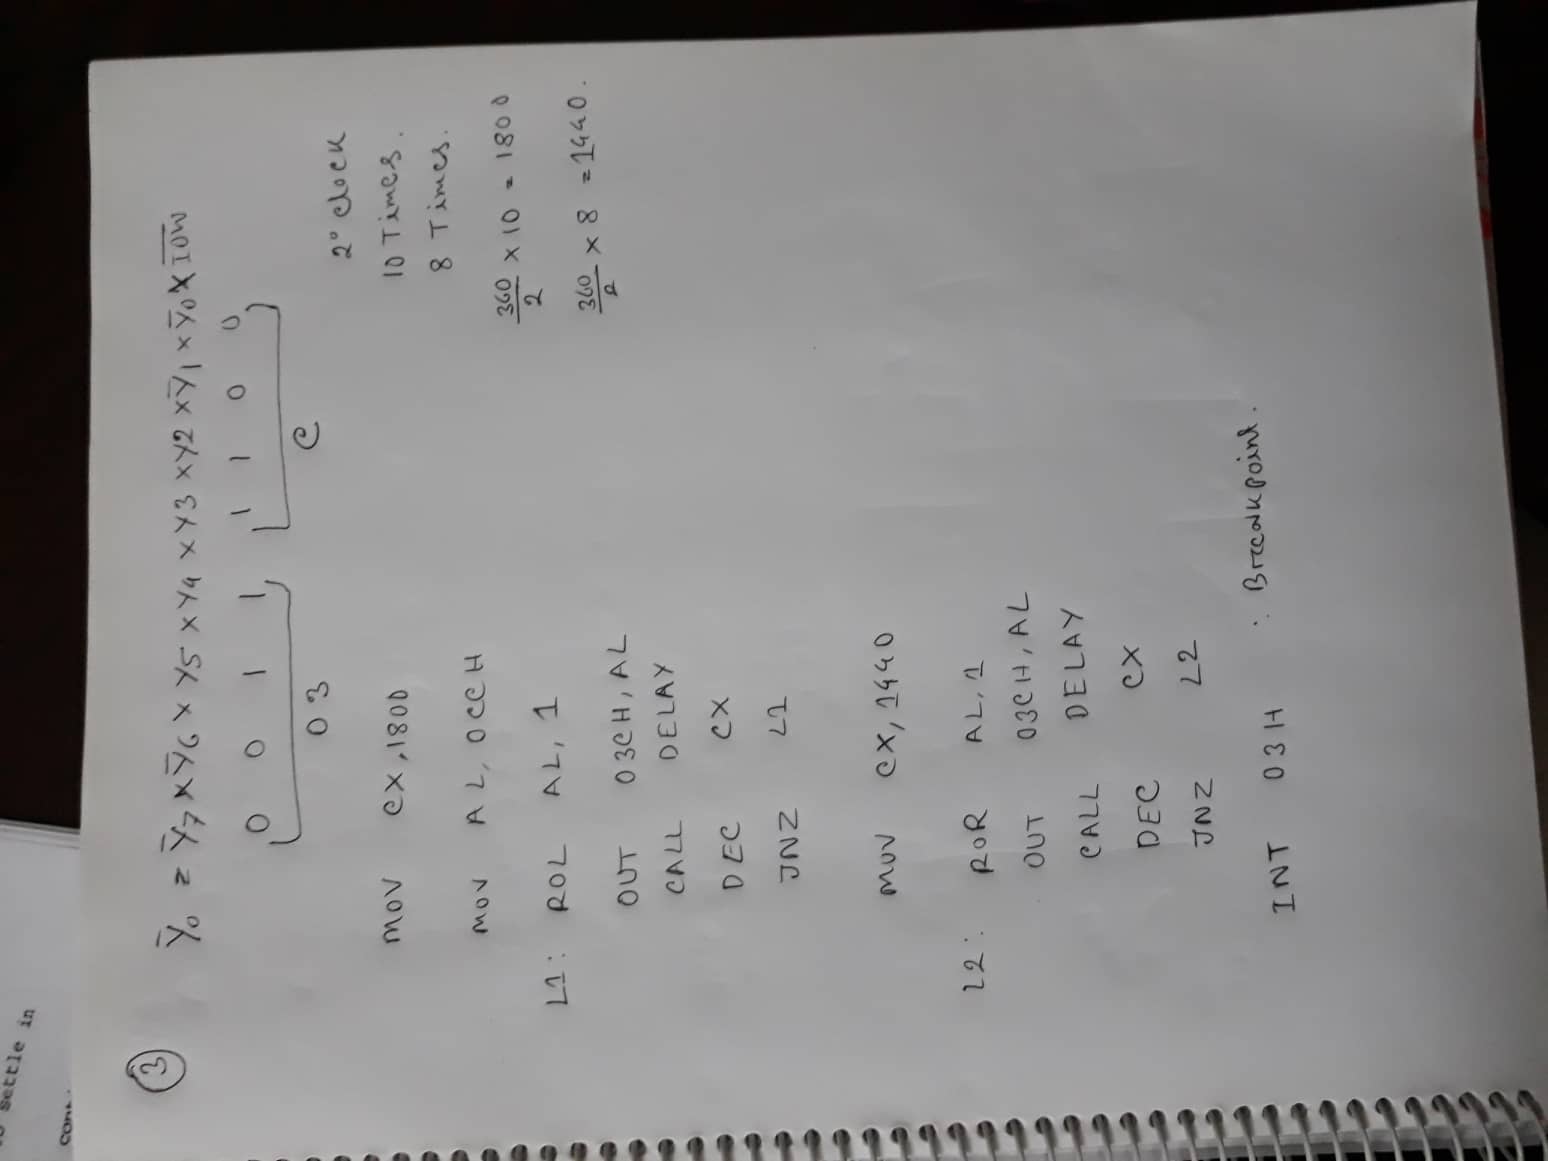 settle in
③
Ȳ0 = Ȳ7 x Ȳ6 x Y5 x Y4 x Y3 x Y2 x Ȳ1 x Ȳ0 x I̅O̅W̅
0 0 1 1 1 1 0 0
03 C
2° clock
10 Times.
8 Times.
360/2 x 10 = 1800
360/2 x 8 = 1440.
MOV CX, 1800
MOV AL, 0CCH
L1: ROL AL, 1
OUT 03CH, AL
CALL DELAY
DEC CX
JNZ L1
MOV CX, 1440
L2: ROR AL, 1
OUT 03CH, AL
CALL DELAY
DEC CX
JNZ L2
INT 03H : Breakpoint.